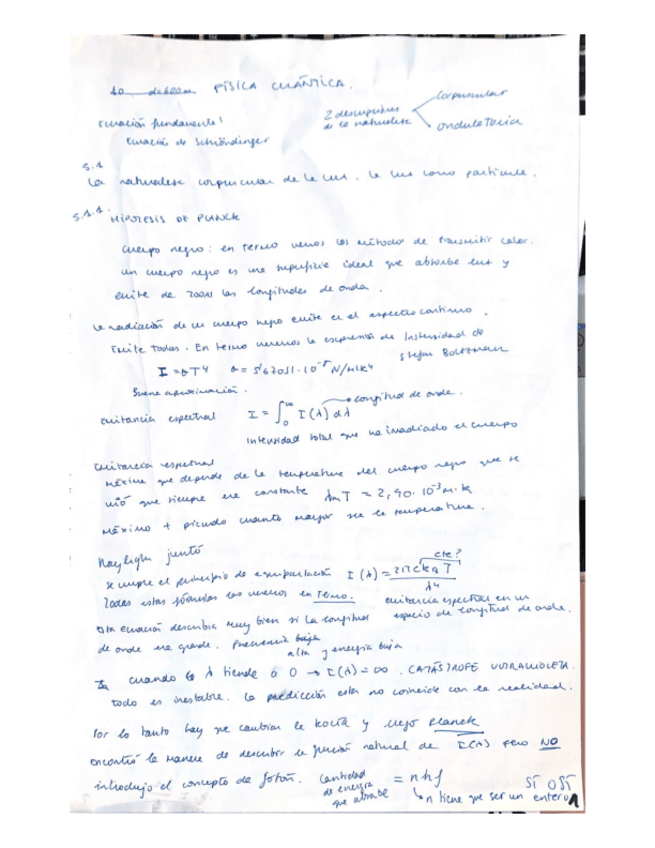 FÍSICA CUÁNTICA.
Ecuación fundamental
Ecuación de Schröndinger
2 descripciones de la naturaleza
Corpuscular
ondulatoria
5.1
La naturaleza corpuscular de la luz. La luz como partícula.
5.1.1 HIPÓTESIS DE PLANCK
Cuerpo negro: en termo vemos los método de transmitir calor.
un cuerpo negro es una superficie ideal que absorbe luz y
emite de todas las longitudes de onda.
La radiación de un cuerpo negro emite en el espectro continuo.
Emite todas. En termo vemos la expresión de Instensidad de
Stefan Boltzmann
I = σT⁴ σ = 5'67051·10⁻⁸ N/m²K⁴
Buena aproximación.
emitancia espectral I = ∫₀^∞ I(λ) dλ → longitud de onda.
Intensidad total que ha irradiado el cuerpo
Emitancia espectral
máxima que depende de la temperatura del cuerpo negro que se
vió que siempre era constante λm T = 2,90·10⁻³ m·K
Máximo + picudo cuanto mayor sea la temperatura.
Rayligh juntó
se cumple el principio de equipartición I(λ) = 2πckBT / λ⁴
cte?
Todas estas fórmulas las vemos en Termo.
emitancia espectral en un
espacio de longitud de onda.
Esta ecuación describía muy bien si la longitud
de onda era grande. Frecuencia baja
alta y energía baja
cuando la λ tiende a 0 → I(λ) = ∞. CATÁSTROFE ULTRAVIOLETA.
todo es inestable. La predicción esta no coincide con la realidad.
Por lo tanto hay que cambiar la teoría y llegó Planck
encontró la manera de describir la función natural de I(λ) pero NO
introdujo el concepto de fotón.
Cantidad
de energía
que absorbe
= nhf
↳ n tiene que ser un entero
SÍ O SÍ
1